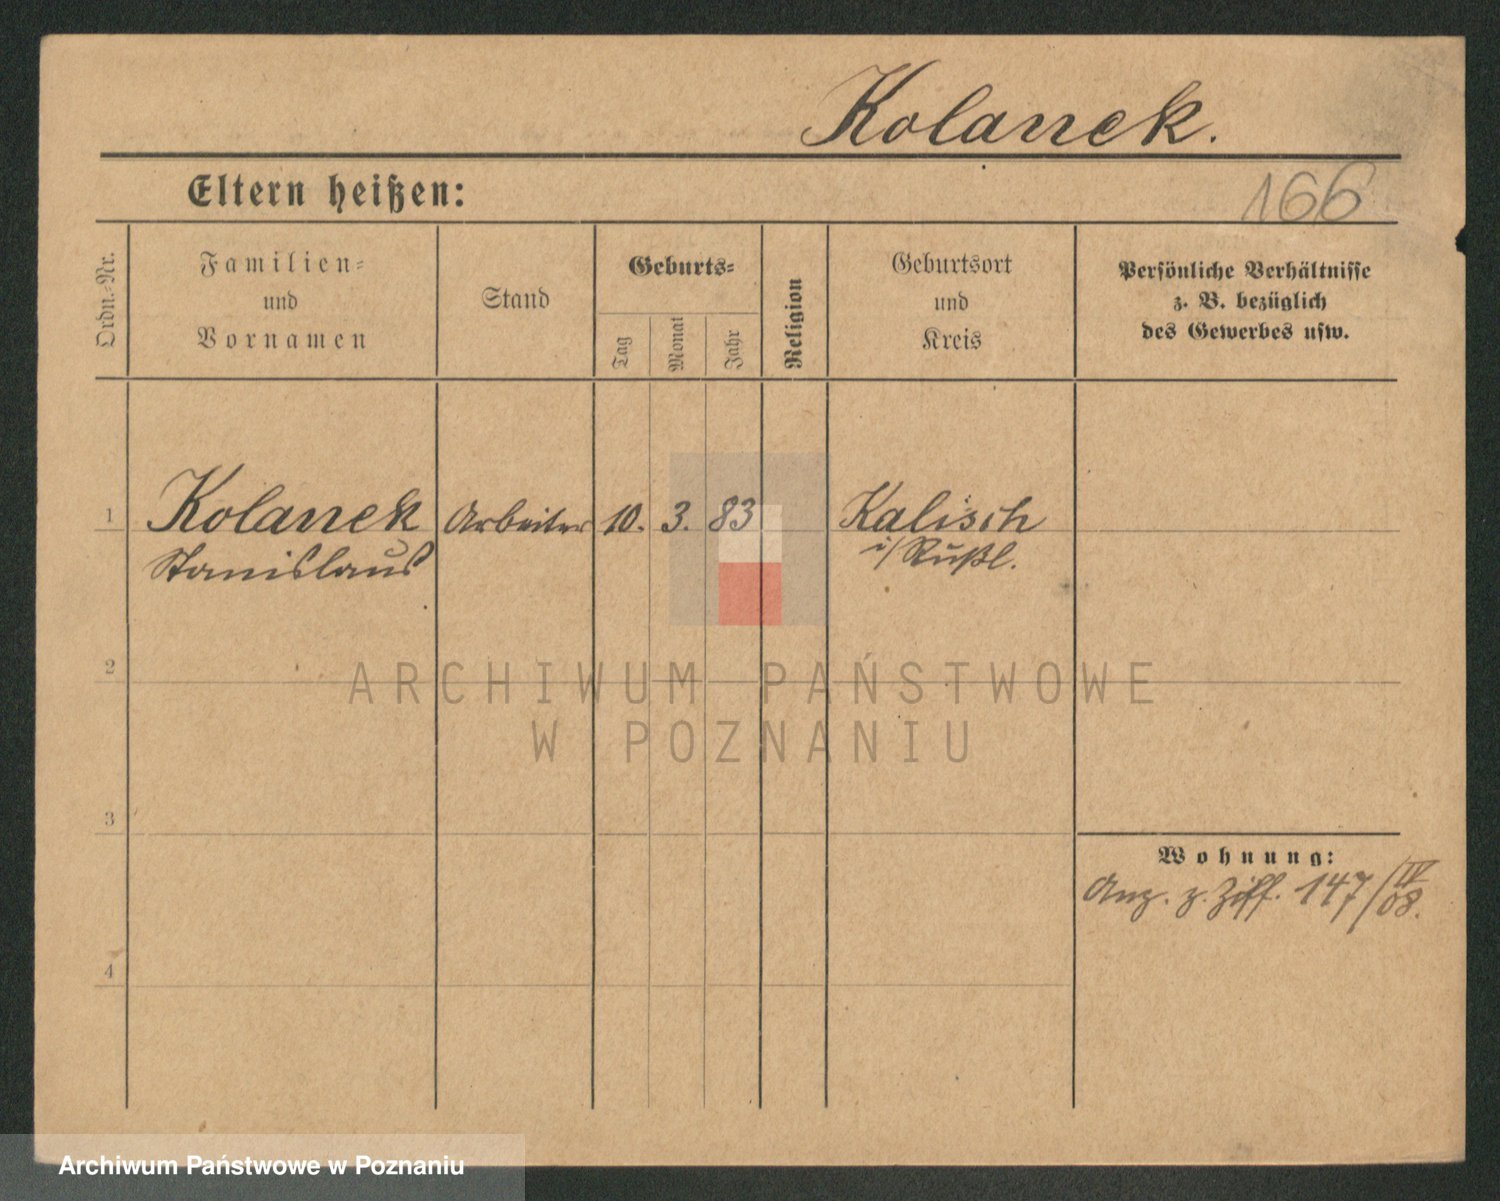 Kolanek.
Eltern heißen:
166
Ordn.-Nr.
Familien-
und
Vornamen
Stand
Geburts-
Tag
Monat
Jahr
Religion
Geburtsort
und
Kreis
Persönliche Verhältnisse
z. B. bezüglich
des Gewerbes usw.
1
Kolanek Arbeiter 10. 3. 83 Kalisch
Stanislaus i/Rußl.
2
ARCHIWUM PAŃSTWOWE
W POZNANIU
3
Wohnung:
Anz. z. Ziff. 147/IV
08.
4
Archiwum Państwowe w Poznaniu